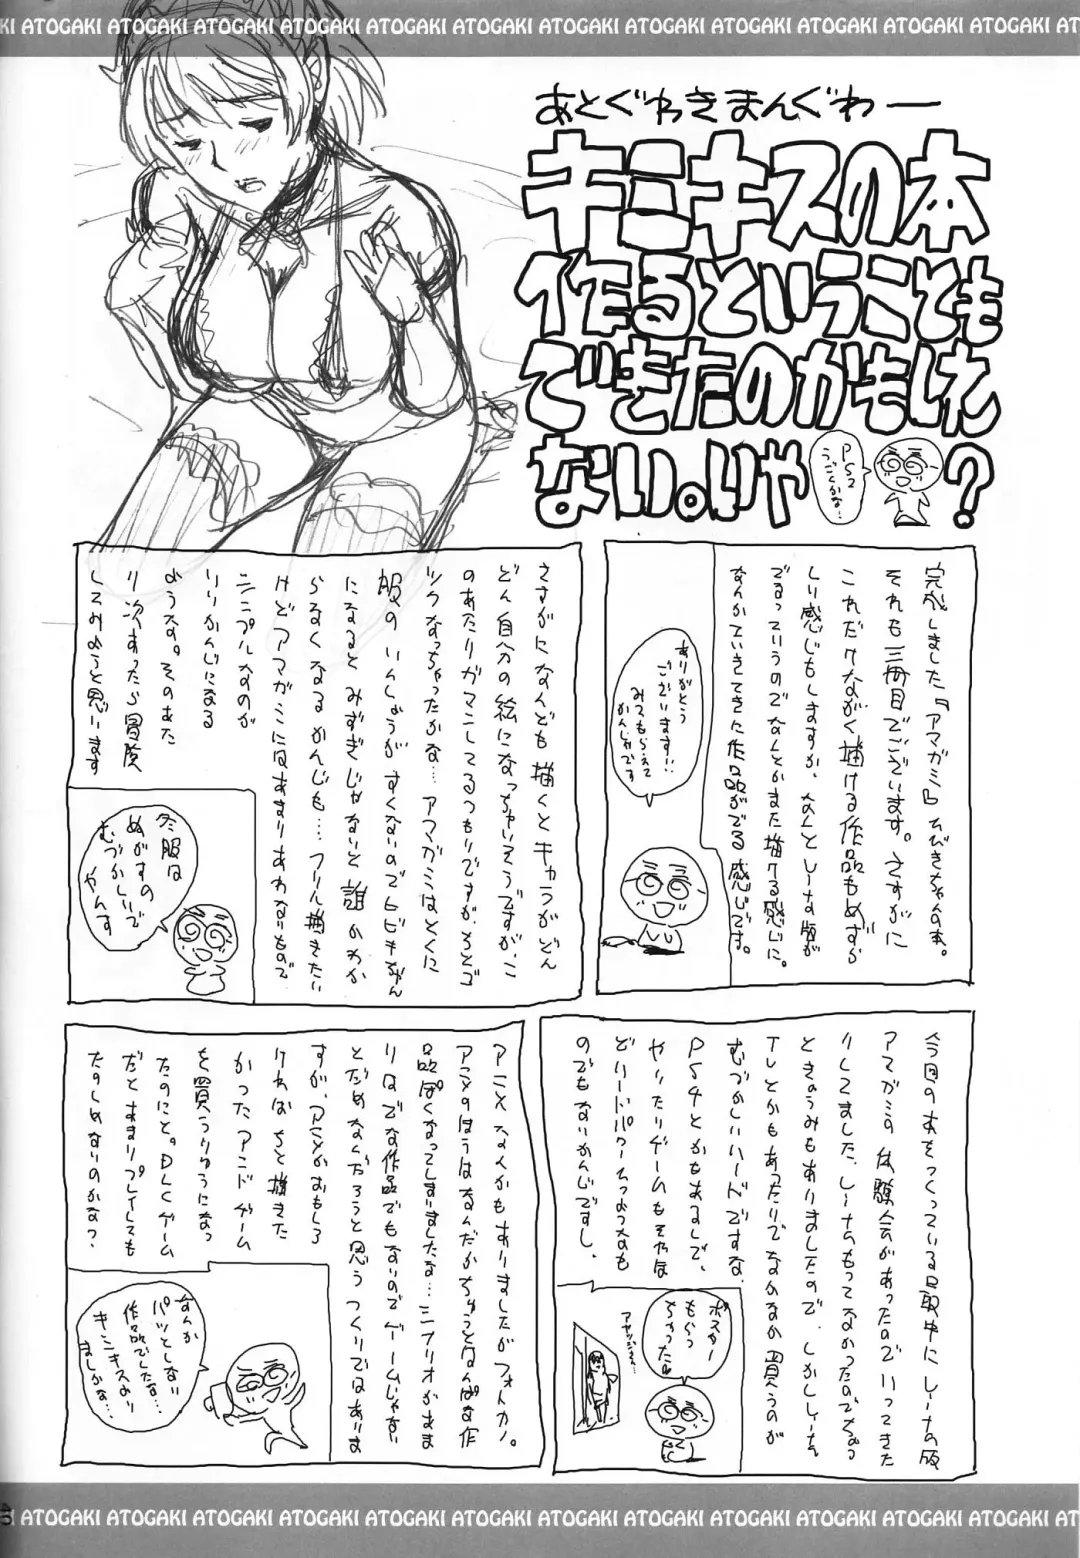 ATOGAKI ATOGAKI ATOGAKI ATOGAKI ATOGAKI ATOGAKI ATOGAKI ATOGAKI ATOGAKI ATOGAKI ATOGAKI
あとぐゎきまんぐわー
キミキスの本
作るということも
できたのかもしれ
ない。いや
PS2
うごくかな…
?
完成しました『アマガミ』ひびきちゃんの本。
それも三冊目でございます。さすがに
これだけながく描ける作品もめずら
しい感じもしますが、なんとビータ版が
でるっていうのでなんとかまた描ける感じに。
なんかていきてきた作品がでる感じです。
ありがとう
ございます!!
みてもらえて
かんしゃです
さすがになんども描くとキャラがどん
どん自分の絵になっちゃいそうですが、こ
のあたりガマンしてるつもりですが、ちとゴ
ツクなっちゃったかな…アマガミはとくに
服のいんしょうがすくないのでヒビキちゃん
になるとみずぎじゃないと誰かわか
らなくなるかんじも…フリル描きたい
けどアマガミにはあまりあわないもので
シンプルなのが
いいかんじになる
ような。そのあた
り次あったら冒険
してみようと思います
冬服は
ぬがすの
むづかしいで
やんす
今回の本をつくっている最中にビータの版
アマガミの体験会があったのでいってきた
りしてました、ビータのもってなかったのでちょっ
ときょうみもありましたので、しかしビータ
TVとかもあったりでなかなか買うのが
むづかしいハードですな
PS4とかもあるしで、
やりたいゲームもそれほ
どハードパワーつかうものも
のでもないかんじですし、
ポスター
もらっ
ちゃったね
アヤツジさん…
アニメなんかもありましたがフォトカノ。
アニメのほうはなんだかちゅうとはんぱな作
品ぽくなってしまいましたな…シナリオがあま
りはでな作品でもないのでゲームじゃない
とだめなんだろうと思うつくりではありま
すが、アニメがおもしろ
ければちと描きた
かったアンドゲーム
を買うりゆうになっ
たのにと。DLCゲーム
だとあまりプレイしても
たのしめないのかな?
なんか
パッとしない
作品でしたな…
キミキスより
ましかな…
40
ATOGAKI ATOGAKI ATOGAKI ATOGAKI ATOGAKI ATOGAKI ATOGAKI ATOGAKI ATOGAKI ATOGAKI ATOGAKI